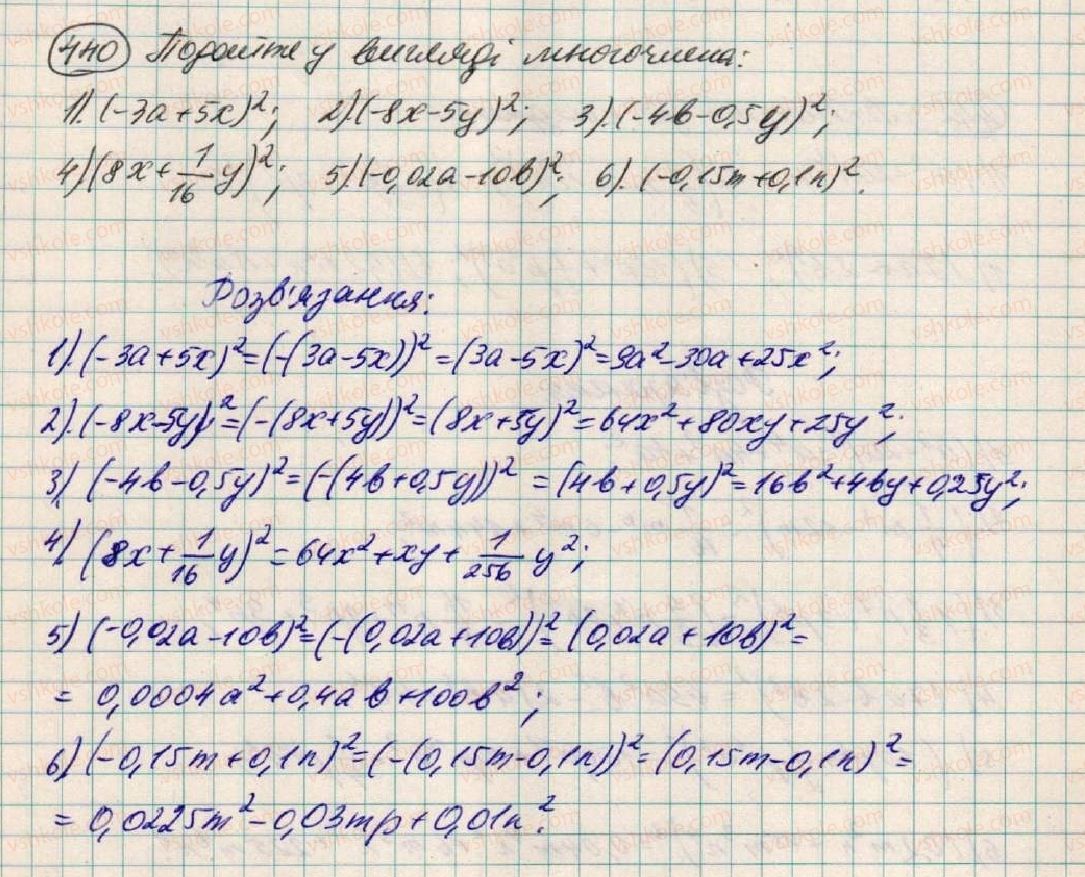 440 Подайте у вигляді многочлена:
1). (-3a+5x)²; 2). (-8x-5y)²; 3). (-4b-0,5y)²;
4) (8x+1/16 y)²; 5). (-0,02a-10b)²; 6). (-0,15m+0,1n)².
Розв'язання:
1). (-3a+5x)²=(-(3a-5x))²=(3a-5x)²=9a²-30a+25x²;
2). (-8x-5y)²=(-(8x+5y))²=(8x+5y)²=64x²+80xy+25y²;
3) (-4b-0,5y)²=(-(4b+0,5y))²=(4b+0,5y)²=16b²+4by+0,25y²;
4) (8x+1/16 y)²=64x²+xy+1/256 y²;
5) (-0,02a-10b)²=(-(0,02a+10b))²=(0,02a+10b)²=
= 0,0004a²+0,4ab+100b²;
6) (-0,15m+0,1n)²=(-(0,15m-0,1n))²=(0,15m-0,1n)²=
= 0,0225m²-0,03mp+0,01n².